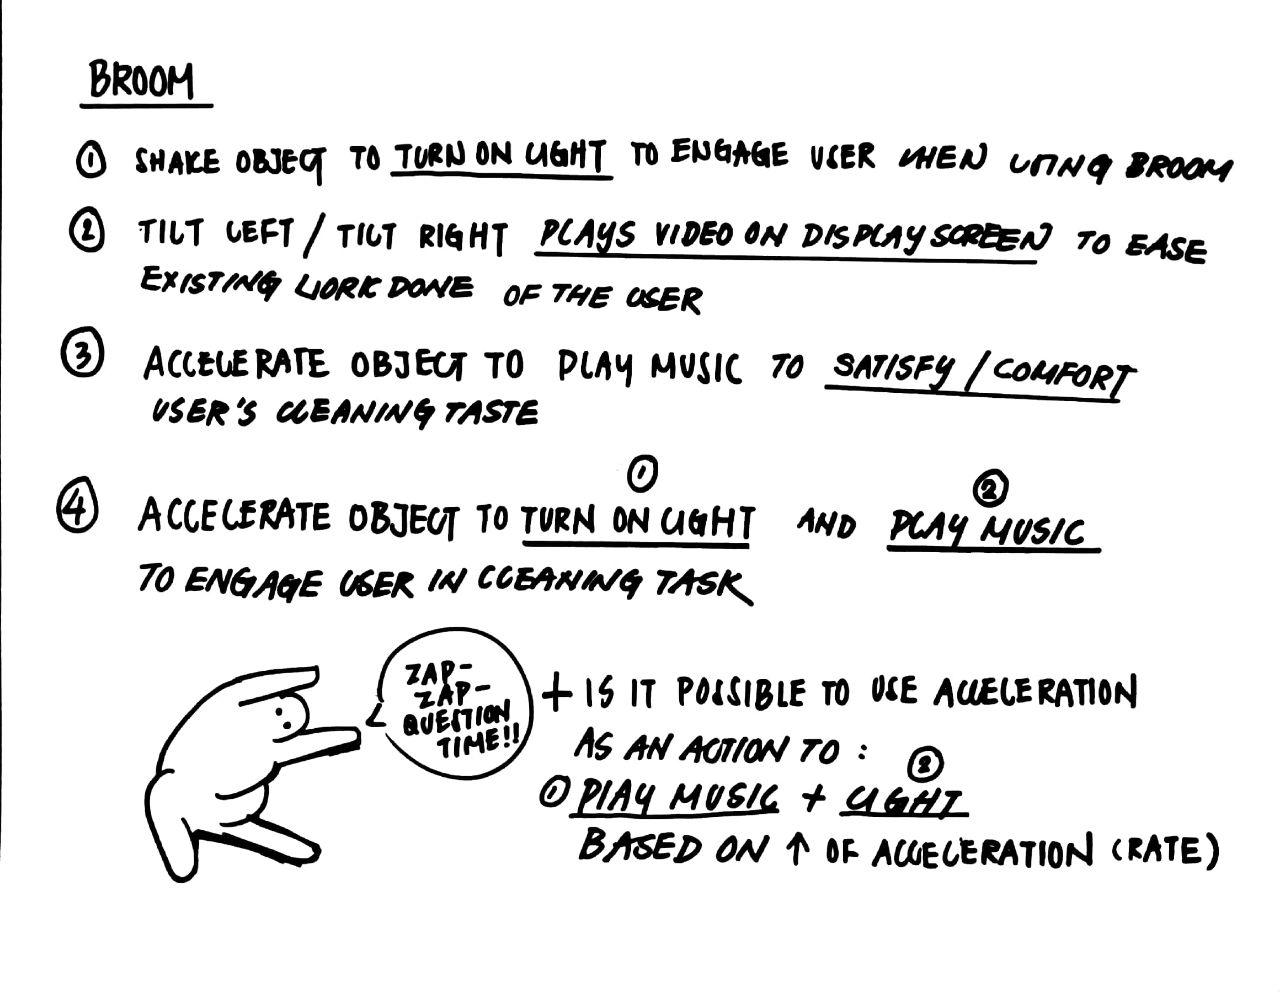 BROOM
① SHAKE OBJECT TO TURN ON LIGHT TO ENGAGE USER WHEN USING BROOM
② TILT LEFT / TILT RIGHT PLAYS VIDEO ON DISPLAY SCREEN TO EASE
EXISTING WORK DONE OF THE USER
③ ACCELERATE OBJECT TO PLAY MUSIC TO SATISFY / COMFORT
USER'S CLEANING TASTE
① ②
④ ACCELERATE OBJECT TO TURN ON LIGHT AND PLAY MUSIC
TO ENGAGE USER IN CLEANING TASK
ZAP-
ZAP-
QUESTION
TIME!!
+ IS IT POSSIBLE TO USE ACCELERATION
AS AN ACTION TO :
②
① PLAY MUSIC + LIGHT
BASED ON ↑ OF ACCELERATION (RATE)